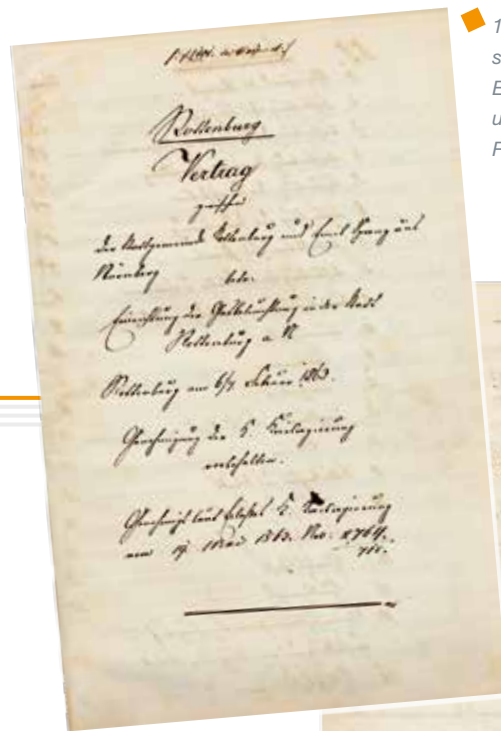 Rottenburg
Vertrag
zwischen
der Stadtgemeinde Rottenburg und Emil Spreng aus
Nürnberg
betr.
Einrichtung der Gasbeleuchtung in der Stadt
Rottenburg a N
Rottenburg am 6/7 Februar 1863.
Genehmigung der K. Kreisregierung
vorbehalten.
Genehmigt laut Erlasses K. Kreisregierung
vom 19 Mai 1863. Nro.
1
s
E
u
F